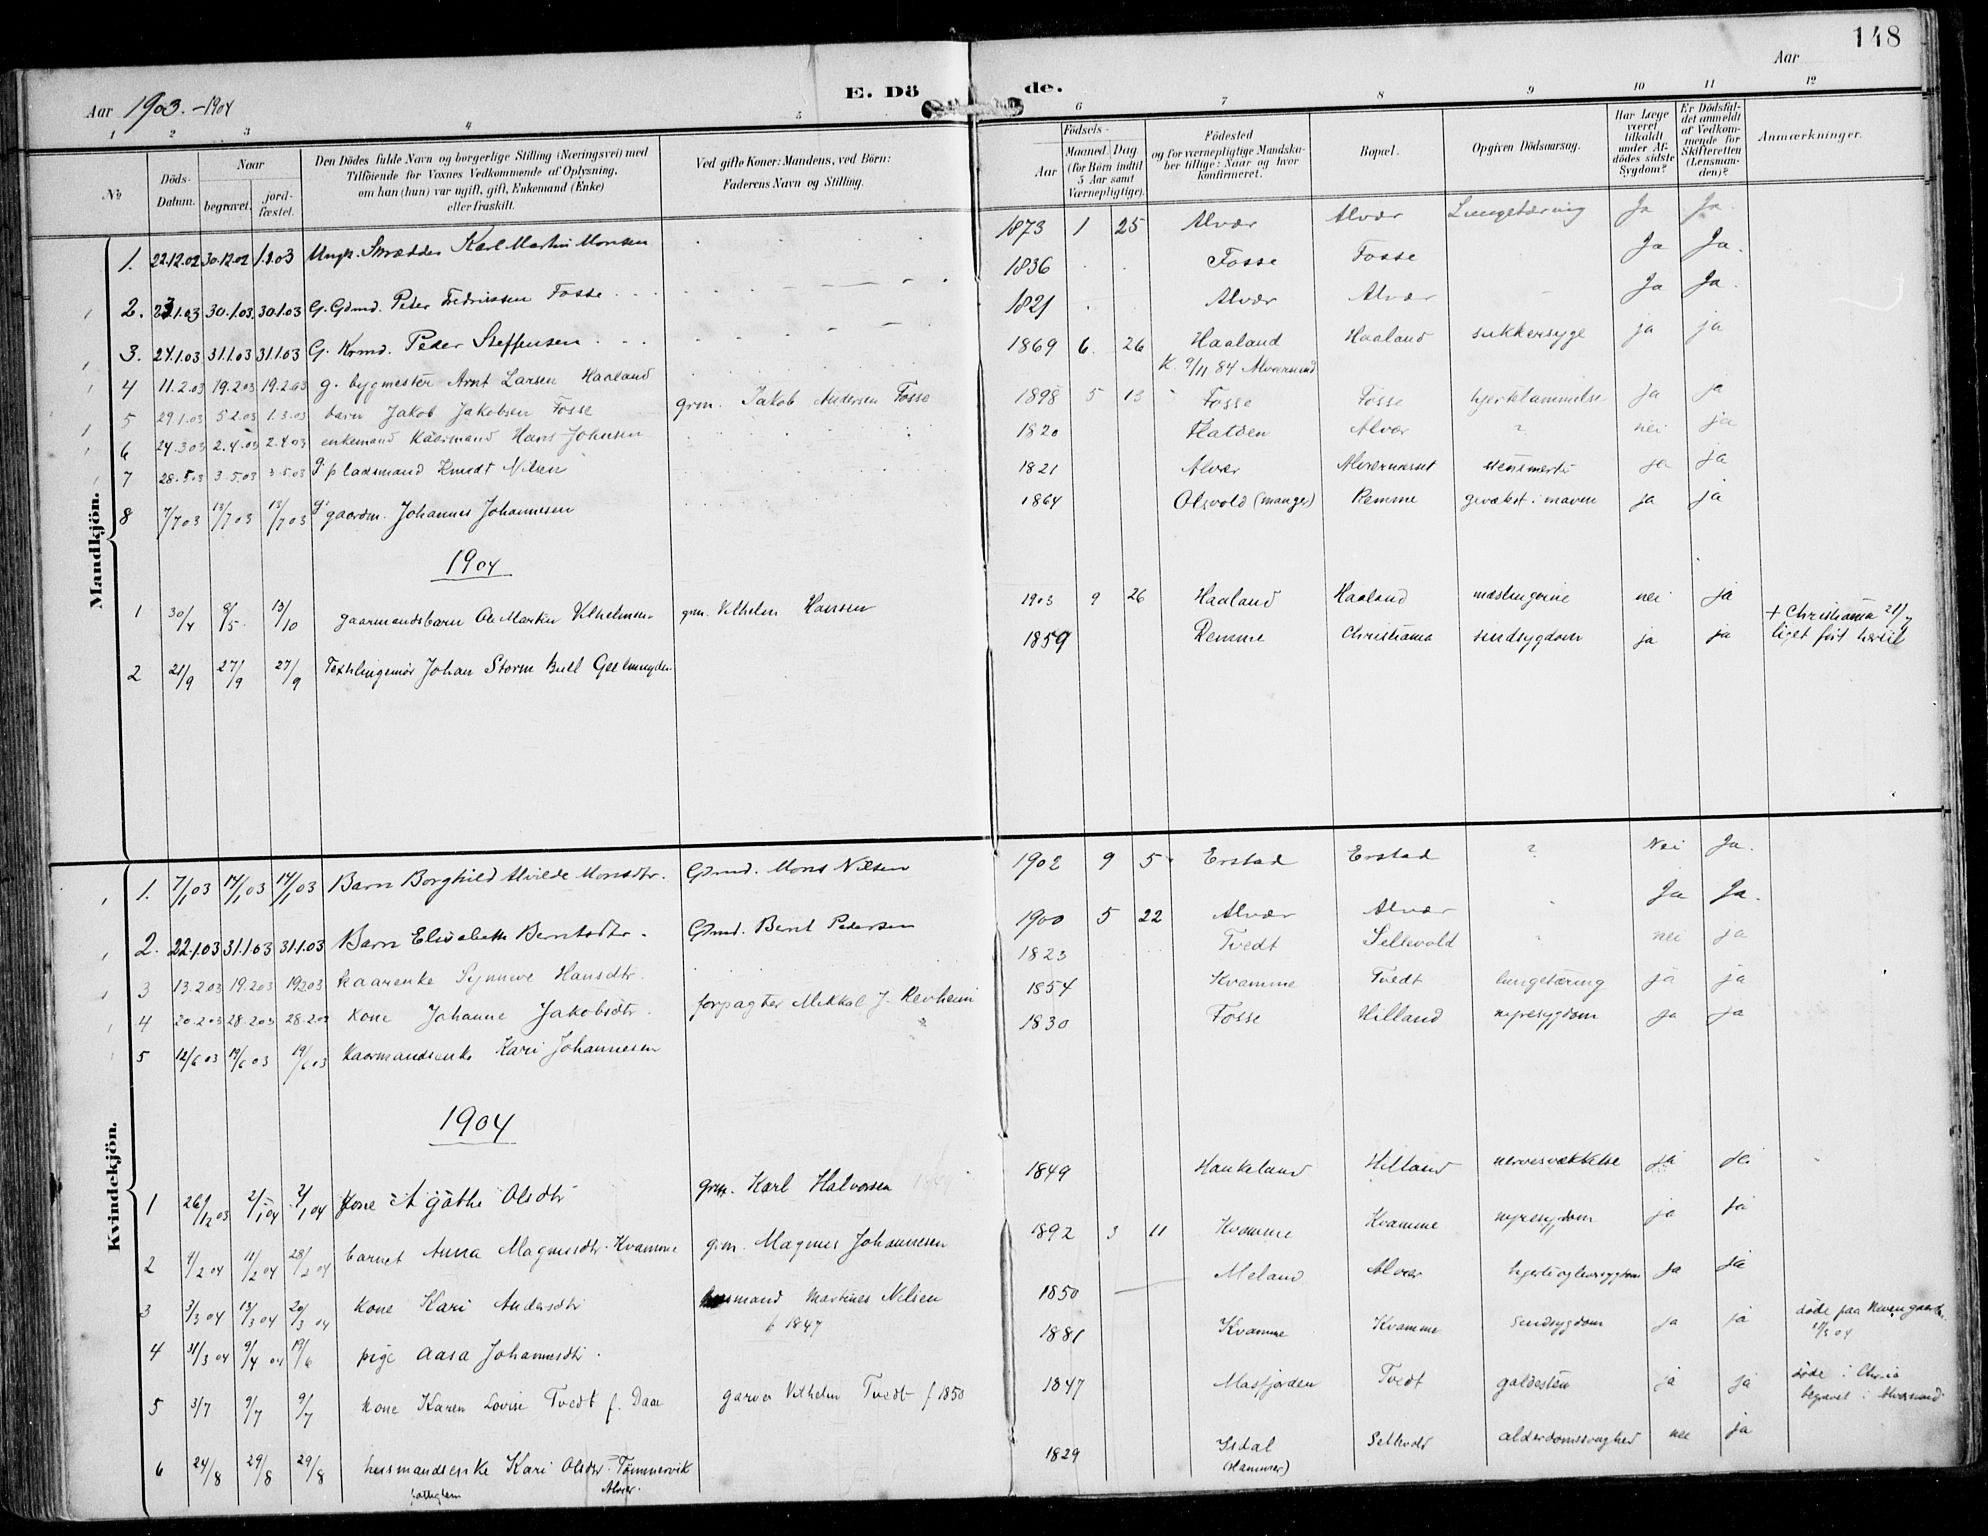 148
Aar 1903.-1904 E. Dö de. Aar
1 2 3 4 5 6 7 8 9 10 11 12
No Döds-Datum. Naar begravet. jord-fæstet. Den Dödes fulde Navn og borgerlige Stilling (Næringsvei) med Tilföiende for Voxnes Vedkommende af Oplysning, om han (hun) var ugift, gift, Enkemand (Enke) eller fraskilt. Ved gifte Koner: Mandens, ved Börn: Faderens Navn og Stilling. Födsels- Aar Maaned. Dag (for Börn indtil 5 Aar samt Værnepligtige). Födested og for værnepligtige Mandskaber tillige: Naar og hvor konfirmeret. Bopæl. Opgiven Dödsaarsag. Har Læge været tilkaldt under Afdödes sidste Sygdom? Er Dödsfaldet anmeldt af Vedkommende for Skifteretten (Lensmanden)? Anmærkninger.
Mandkjön.
1. 22.12.02 30.12.02 1.2.03 Ungk. Skrædder Karl Martin Monsen 1873 1 25 Alvær Alvær Lungetæring Ja Ja.
2. 1.03 30.1.03 30.1.03 G. Gdmd. Peder Fredriksen Fosse 1836 Fosse Fosse Ja Ja.
3. 24.1.03 31.1.03 31.1.03 G. Krmd. Peder Steffensen 1821 Alvær Alvær Ja Ja.
4 11.2.03 19.2.03 19.2.03 g. bygmester Arnt Larsen Haaland 1869 6. 26 Haaland Haaland sukkersyge ja ja
K. 9/11 84 Alversund
5 29.1.03 5.2.03 1.3.03 barn Jakob Jakobsen Fosse grm. Jakob Andersen Fosse 1898 5 13 Fosse Fosse hjertelammelse ja ja
6 24.3.03 2.4.03 2.4.03 enkemand Kaarmand Hans Johnsen 1820 Alvær ? nei ja
7 28.5.03 3.5.03 3.5.03 g. pladsmand Knudt Nilsen 1821 Alvær Alværnesset ja ja
8 7/7 03 13/7 03 13/7 03 g gaardm. Johannes Johannesen 1864 Olsvold (manger) Remme gevækst i maven ja ja
1904
1 30/4 8/5 13/10 gaarmandsbarn Ole Martin Vilhelmsen grm. Vilhelm Hanssen 1903 9 26 Haaland Haaland mæslingerne nei ja
2 21/9 27/9 27/9 Textilingeniør Johan Storm Bull Geelmuyden 1859 Remme Christiania sindsygdom ja ja + Christiania 21/9
liget ført hertil
Kvindekjön.
1. 7/1 03 14/1 03 14/1 03 Barn Borghild Alvilde Monsdtr. Gdmd. Mons Nilsen 1902 9 5 Erstad Erstad ? Nei Ja.
2. 22.1.03 31.1.03 31.1.03 Barn Elisabeth Berntsdtr. Gdmd. Bernt Pedersen 1900 5 22 Alvær Alvær Ja Ja.
3 13.2.03 19.2.03 19.2.03 kaarenke Synneve Hansdtr. 1823 Tvedt Sellevold nei ja
4 20.2.03 28.2.03 28.2.03 kone Johanne Jakobsdtr. forpagter Mikkal J. Revheim 1854 Kvamme Tvedt lungetæring ja ja
5 12/6 03 19/6 03 19/6 03 kaarmandsenke Kari Johannesen 1830 Fosse Hilland nyresygdom ja ja
1904
1 26/12 03 2/1 04 2/1 04 kone Agathe Olsdtr grm. Karl Halvorsen 1849 Haukeland Hilland nervesvækkelse ja ja
2 4/2 04 11/2 04 28/2 04 barnet Anna Magnusdtr. Kvamme grm. Magnus Johannesen 1892 3 11 Kvamme Kvamme nyresygdom ja ja
3 3/3 04 13/3 04 20/3 04 kone Kari Andersdtr husmand Martines Nilsen 1850 Meland Alvær ja ja
f. 1847
4 31/3 04 9/4 04 19/6 pige Aasa Johannesdtr. 1881 Kvamme Kvamme Sindsygdom ja ja døde paa Nevengaarden
5 3/7 9/7 9/7 kone Karen Lovise Tvedt f. Daae garver Vilhelm Tvedt f 1850 1847 Masfjorden Tvedt galdesten ja ja døde i Chria
begravet i Alversund
6 24/8 29/8 29/8 husmandsenke Kari Olsdtr. Tømmervik 1829 Isdal alderdomssvaghed nei ja
fattiglem Alver. (Hammer)